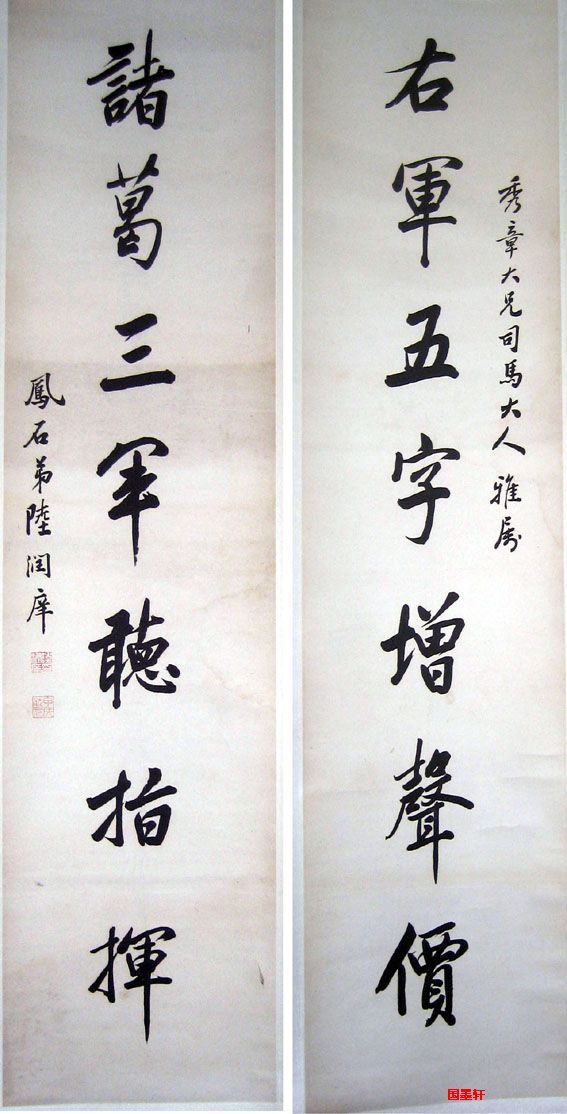 秀章大兄司馬大人雅属
右軍五字增聲價
諸葛三軍聽指揮
鳳石弟陸潤庠
国墨轩